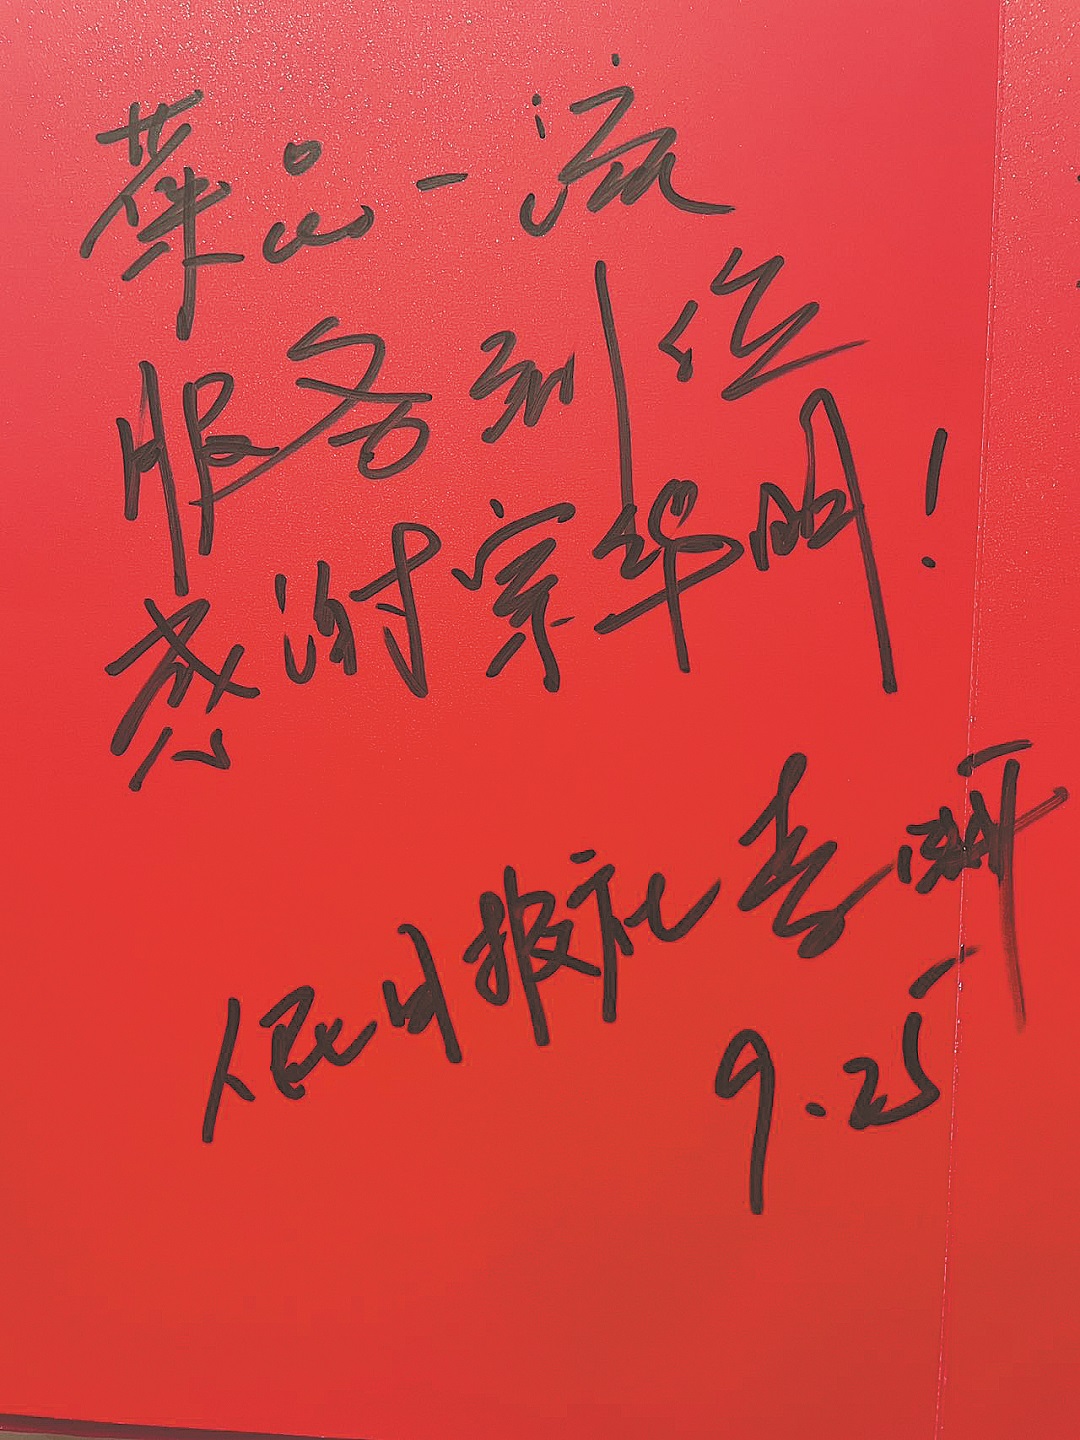 菜品一流
服务到位
感谢宗华明！
人民日报社 李
9.25